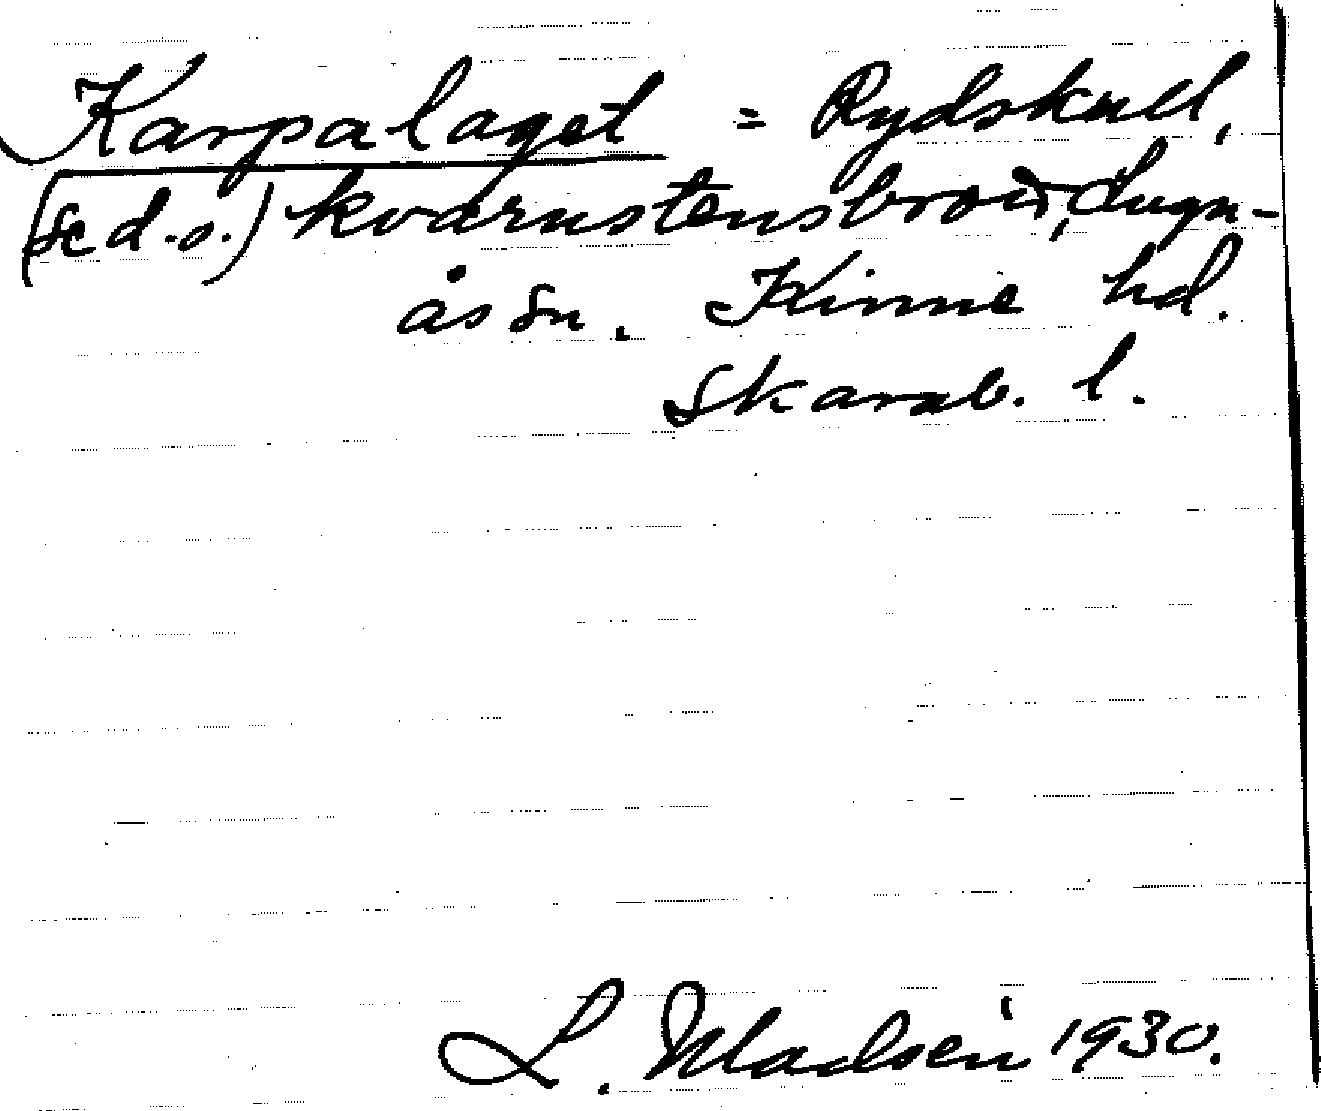 Karpalaget = Rydskull,
(se d.o.) kvarnstensbrott, Lugn-
ås sn. Kinne hd.
Skarab. l.
L. Madsén 1930.